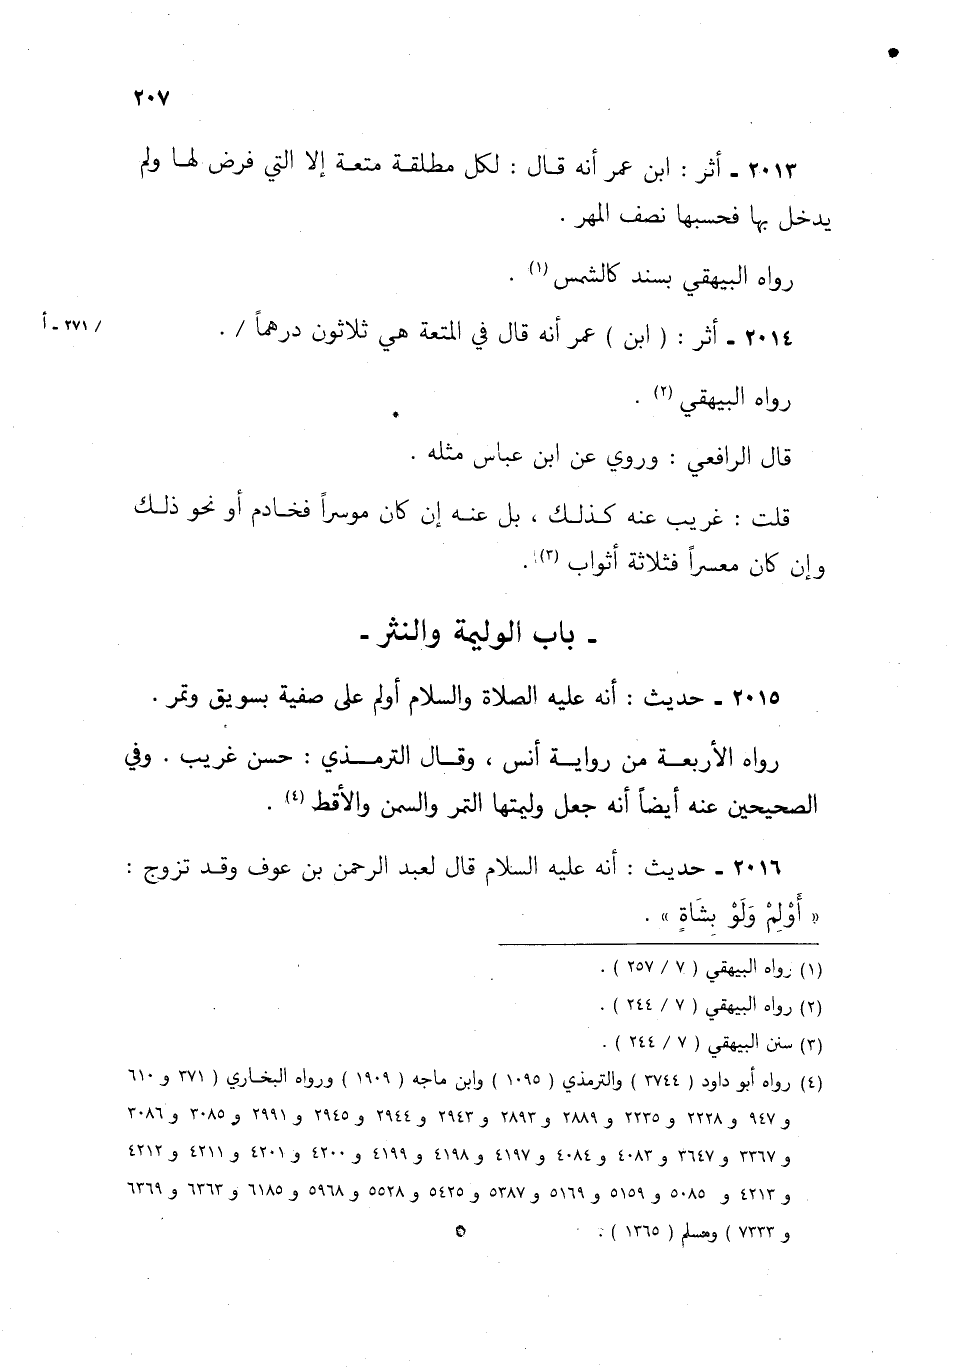 ٢٠٧
٢٠١٣ ـ أثر : ابن عمر أنه قال : لكل مطلقة متعة إلا التي فرض لها ولم
يدخل بها فحسبها نصف المهر .
رواه البيهقي بسند كالشمس (١) .
٢٠١٤ ـ أثر : ( ابن ) عمر أنه قال في المتعة هي ثلاثون درهماً / .
/ ٢٧١ ـ أ
رواه البيهقي (٢) .
قال الرافعي : وروي عن ابن عباس مثله .
قلت : غريب عنه كذلك ، بل عنه إن كان موسراً فخادم أو نحو ذلك
وإن كان معسراً فثلاثة أثواب (٣) .
ـ باب الوليمة والنثر ـ
٢٠١٥ ـ حديث : أنه عليه الصلاة والسلام أولم على صفية بسويق وتمر .
رواه الأربعة من رواية أنس ، وقال الترمذي : حسن غريب . وفي
الصحيحين عنه أيضاً أنه جعل وليمتها التمر والسمن والأقط (٤) .
٢٠١٦ ـ حديث : أنه عليه السلام قال لعبد الرحمن بن عوف وقد تزوج :
« أَوْلِمْ وَلَوْ بِشَاةٍ » .
(١) رواه البيهقي ( ٧ / ٢٥٧ ) .
(٢) رواه البيهقي ( ٧ / ٢٤٤ ) .
(٣) سنن البيهقي ( ٧ / ٢٤٤ ) .
(٤) رواه أبو داود ( ٣٧٤٤ ) والترمذي ( ١٠٩٥ ) وابن ماجه ( ١٩٠٩ ) ورواه البخاري ( ٣٧١ و ٦١٠
و ٩٤٧ و ٢٢٢٨ و ٢٢٣٥ و ٢٨٨٩ و ٢٨٩٣ و ٢٩٤٣ و ٢٩٤٤ و ٢٩٤٥ و ٢٩٩١ و ٣٠٨٥ و ٣٠٨٦
و ٣٣٦٧ و ٣٦٤٧ و ٤٠٨٣ و ٤٠٨٤ و ٤١٩٧ و ٤١٩٨ و ٤١٩٩ و ٤٢٠٠ و ٤٢٠١ و ٤٢١١ و ٤٢١٢
و ٤٢١٣ و ٥٠٨٥ و ٥١٥٩ و ٥١٦٩ و ٥٣٨٧ و ٥٤٢٥ و ٥٥٢٨ و ٥٩٦٨ و ٦١٨٥ و ٦٣٦٣ و ٦٣٦٩
و ٧٣٣٣ ) ومسلم ( ١٣٦٥ ) .